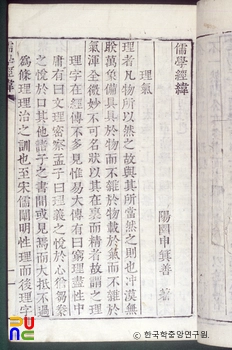 儒學經緯
陽園申箕善 著
理氣
理者凡物所以然之故與其所當然之則也冲漠無
眹萬象備具具於物而不雜於物載於氣而不雜於
氣渾全微妙不可名狀以其在裏而精者故謂之理
理字在經傳不多見惟易大傳有曰窮理盡性中
庸有曰文理密察孟子曰理義之悅於心猶芻豢
之悅於口其他諸子之書間或見焉而大抵不過
爲條理理治之訓也至宋儒闡明性理而後理字
儒學經緯
一
한국학중앙연구원